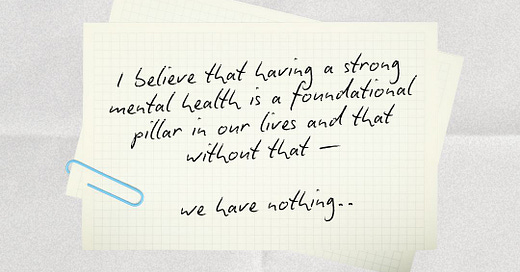 I believe that having a strong
mental health is a foundational
pillar in our lives and that
without that —
we have nothing..